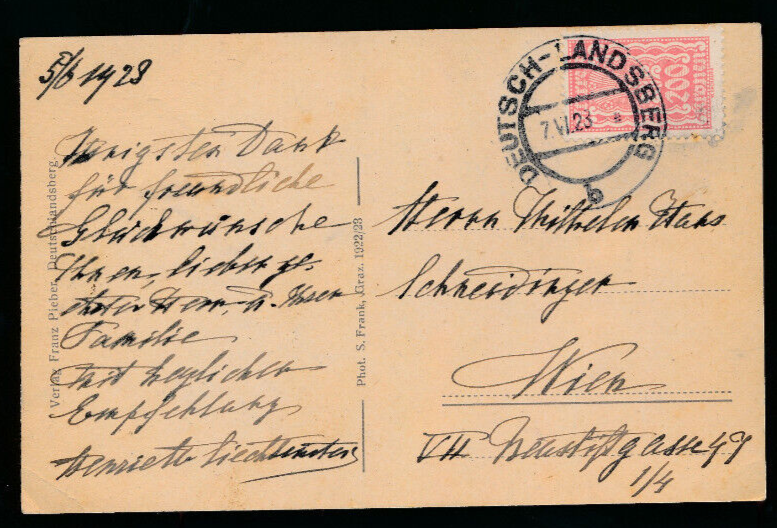 5/6 1923
Innigsten Dank
für freundliche
Glückwünsche
Ihnen, lieber ge-
ehrter Herr, u. Ihrer
Familie
mit herzlichen
Empfehlung
Henriette Liechtenstein
Verlag Franz Pieber, Deutschlandsberg.
Phot. S. Frank, Graz. 1922/23
DEUTSCH-LANDSBERG
7.VI.23 *
b
200
Herrn Wilhelm Hans
Schneidinger
Wien
VII Neustiftgasse 47
1/4